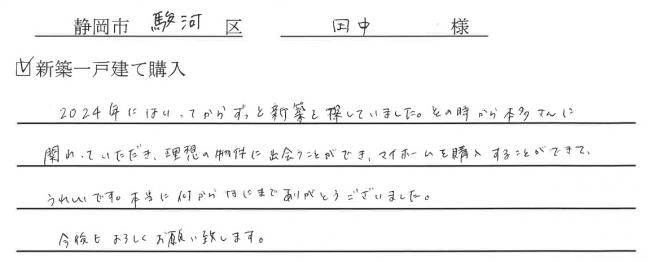 静岡市 駿河 区 田中 様
☑新築一戸建て購入
2024年にはいってからずっと新築を探していました。その時から本多さんに
関わっていただき、理想の物件に出会うことができ、マイホームを購入することができて、
うれしいです。本当に何からなにまでありがとうございました。
今後もよろしくお願い致します。